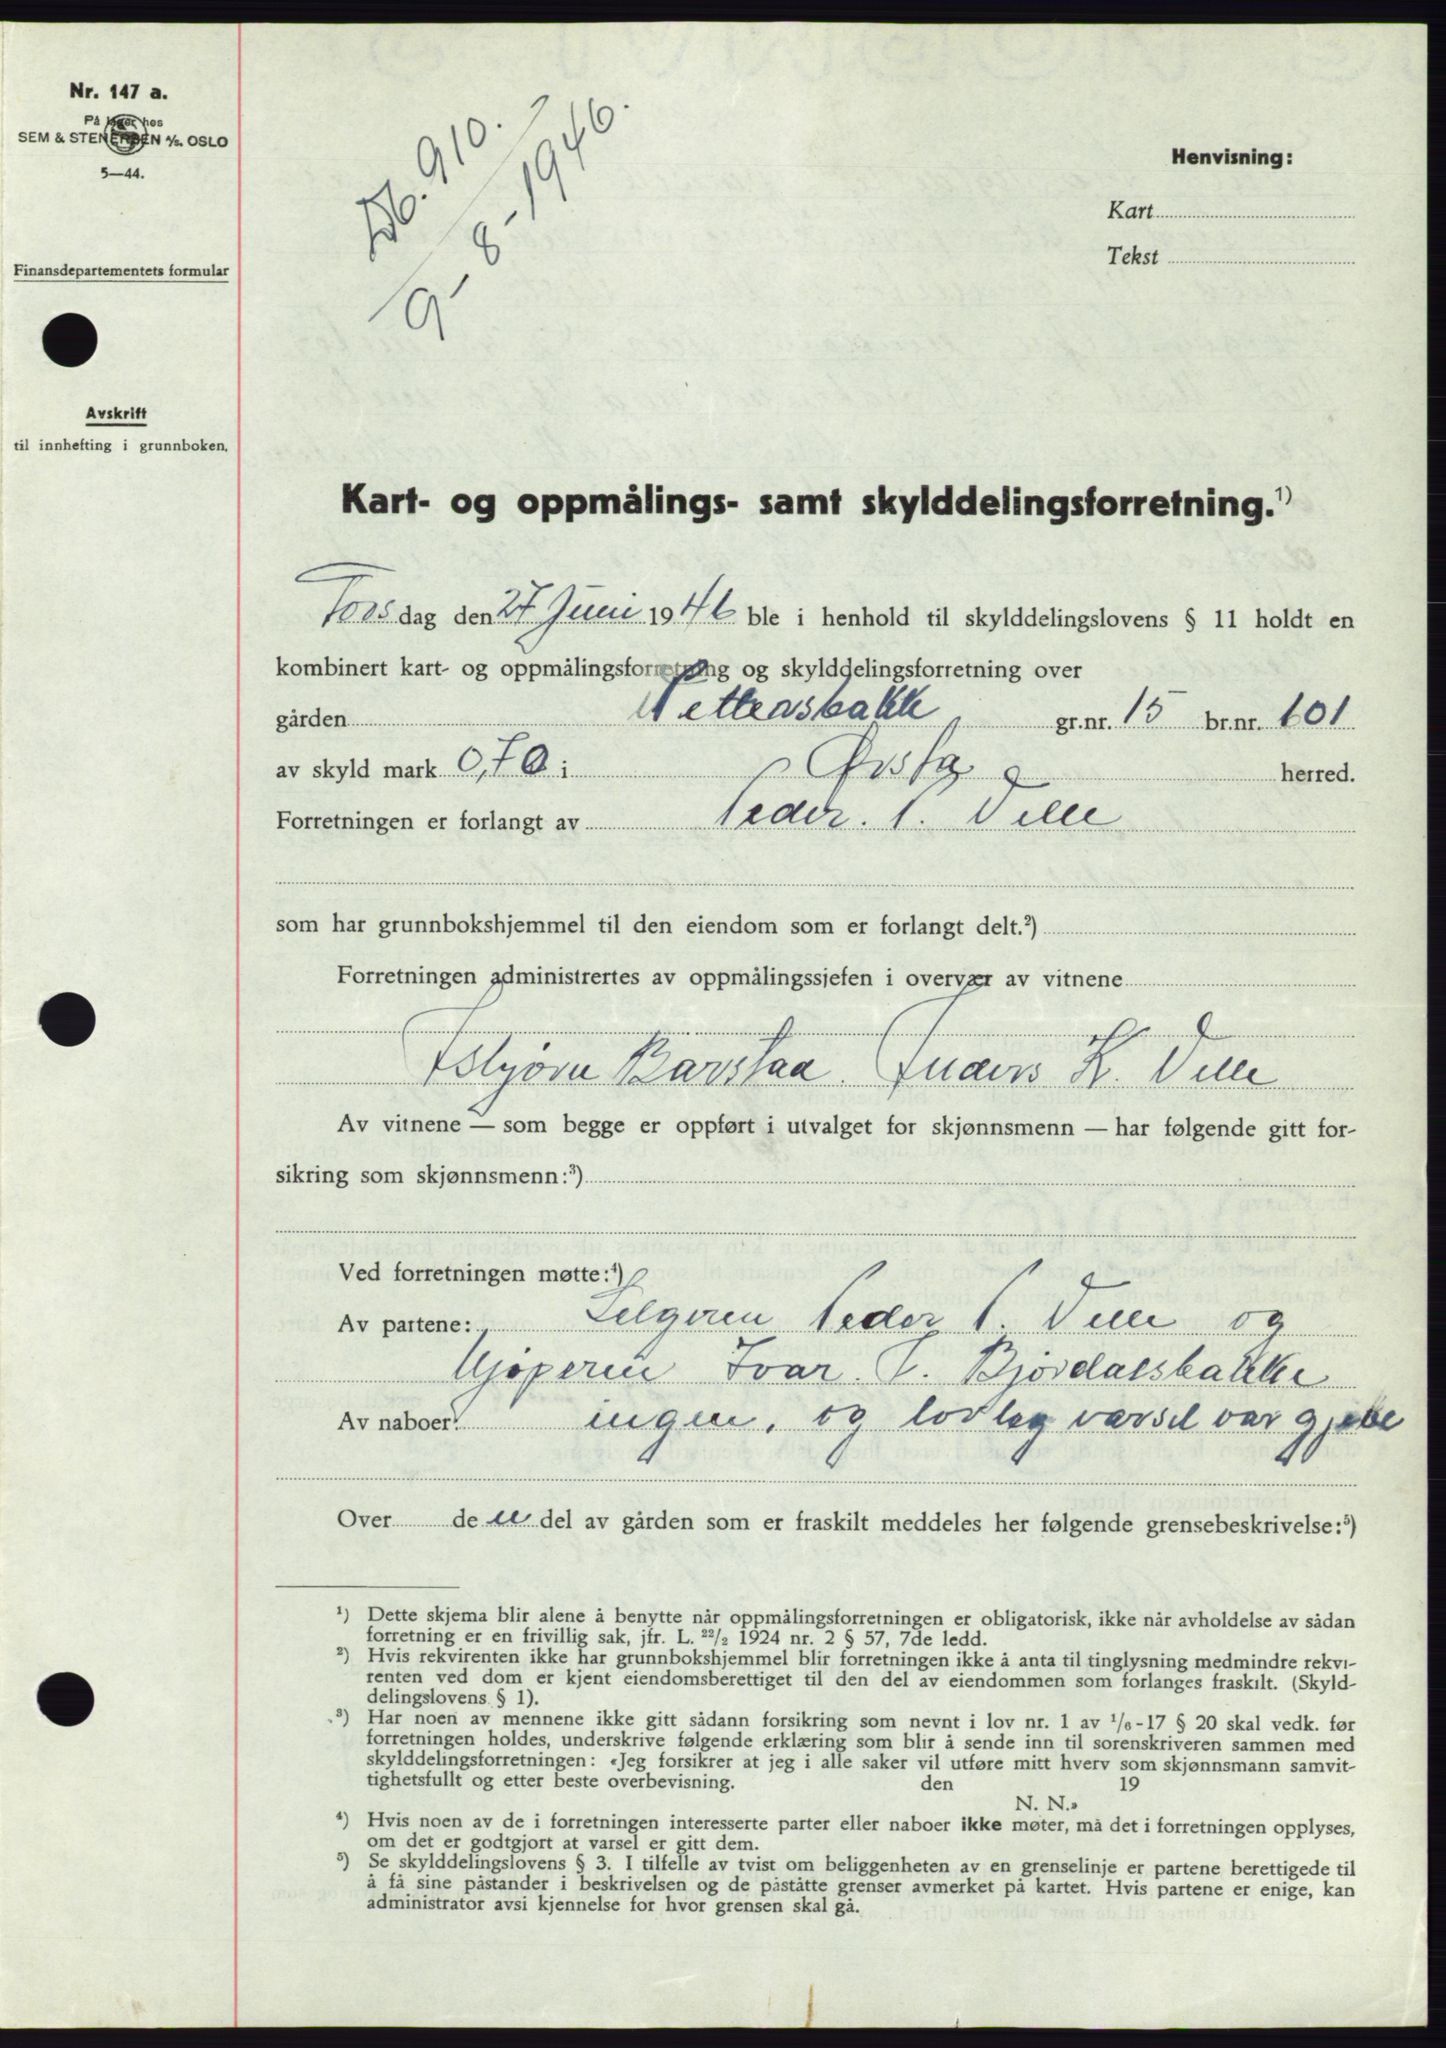 Nr. 147 a.
På lager hos
SEM & STENERSEN A/S. OSLO
5—44.
Finansdepartementets formular
Avskrift
til innhefting i grunnboken.
Db. 910.
9-8-1946.
Henvisning:
Kart
Tekst
Kart- og oppmålings- samt skylddelingsforretning.¹)
Torsdag den 27 Juni 1946 ble i henhold til skylddelingslovens § 11 holdt en
kombinert kart- og oppmålingsforretning og skylddelingsforretning over
gården Pettersbakk gr.nr. 15 br.nr. 101
av skyld mark 0,70 i Ørsta herred.
Forretningen er forlangt av Peder. P. Velle
som har grunnbokshjemmel til den eiendom som er forlangt delt.²)
Forretningen administrertes av oppmålingssjefen i overvær av vitnene
Asbjørn Barstad. Anders K. Velle
Av vitnene — som begge er oppført i utvalget for skjønnsmenn — har følgende gitt for-
sikring som skjønnsmenn:³)
Ved forretningen møtte:⁴)
Av partene: Selgeren Peder P. Velle og
kjøperen Ivar. T. Bjørdalsbakke
Av naboer: ingen, og lovleg varsel var gjeve
Over de u del av gården som er fraskilt meddeles her følgende grensebeskrivelse:⁵)
¹) Dette skjema blir alene å benytte når oppmålingsforretningen er obligatorisk, ikke når avholdelse av sådan
forretning er en frivillig sak, jfr. L. ²²/₂ 1924 nr. 2 § 57, 7de ledd.
²) Hvis rekvirenten ikke har grunnbokshjemmel blir forretningen ikke å anta til tinglysning medmindre rekvi-
renten ved dom er kjent eiendomsberettiget til den del av eiendommen som forlanges fraskilt. (Skyld-
delingslovens § 1).
³) Har noen av mennene ikke gitt sådann forsikring som nevnt i lov nr. 1 av ¹/₆-17 § 20 skal vedk. før
forretningen holdes, underskrive følgende erklæring som blir å sende inn til sorenskriveren sammen med
skylddelingsforretningen: «Jeg forsikrer at jeg i alle saker vil utføre mitt hverv som skjønnsmann samvit-
tighetsfullt og etter beste overbevisning. den 19
N. N.»
⁴) Hvis noen av de i forretningen interesserte parter eller naboer ikke møter, må det i forretningen opplyses,
om det er godtgjort at varsel er gitt dem.
⁵) Se skylddelingslovens § 3. I tilfelle av tvist om beliggenheten av en grenselinje er partene berettigede til
å få sine påstander i beskrivelsen og de påståtte grenser avmerket på kartet. Hvis partene er enige, kan
administrator avsi kjennelse for hvor grensen skal gå.